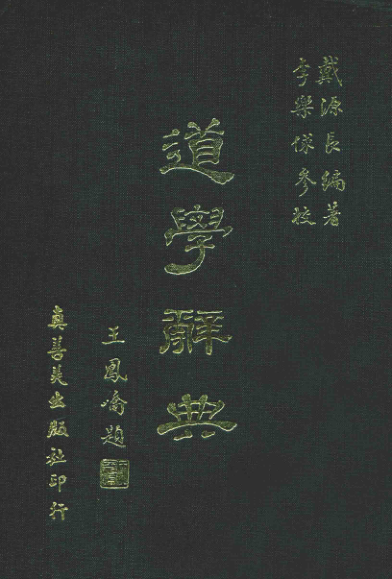 戴源長編著
李樂俅參校
道學辭典
王鳳喬題
真善美出版社印行